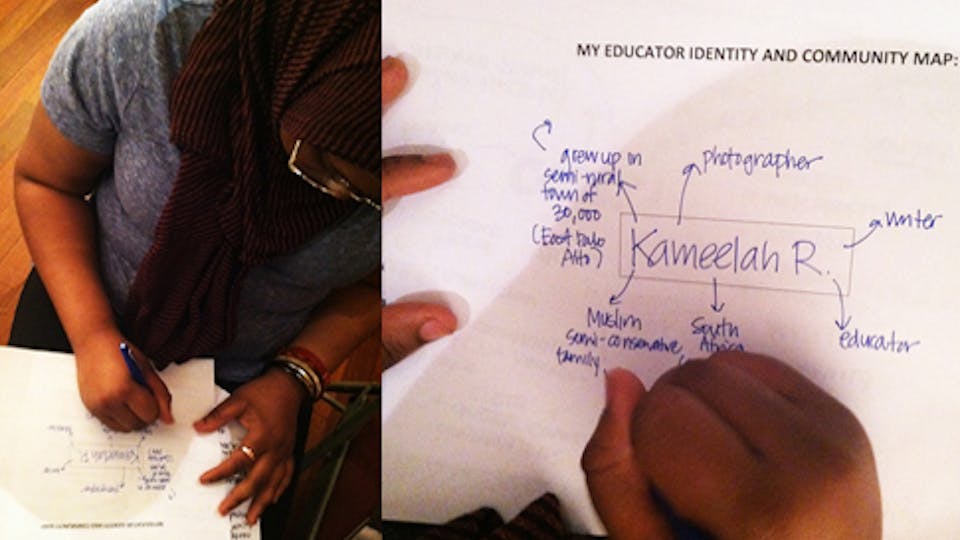 MY EDUCATOR IDENTITY AND COMMUNITY MAP:
grew up in
semi-rural
town of
30,000
(East Palo
Alto)
photographer
writer
Kameelah R.
Muslim
semi-conservative
family
South
Africa
educator